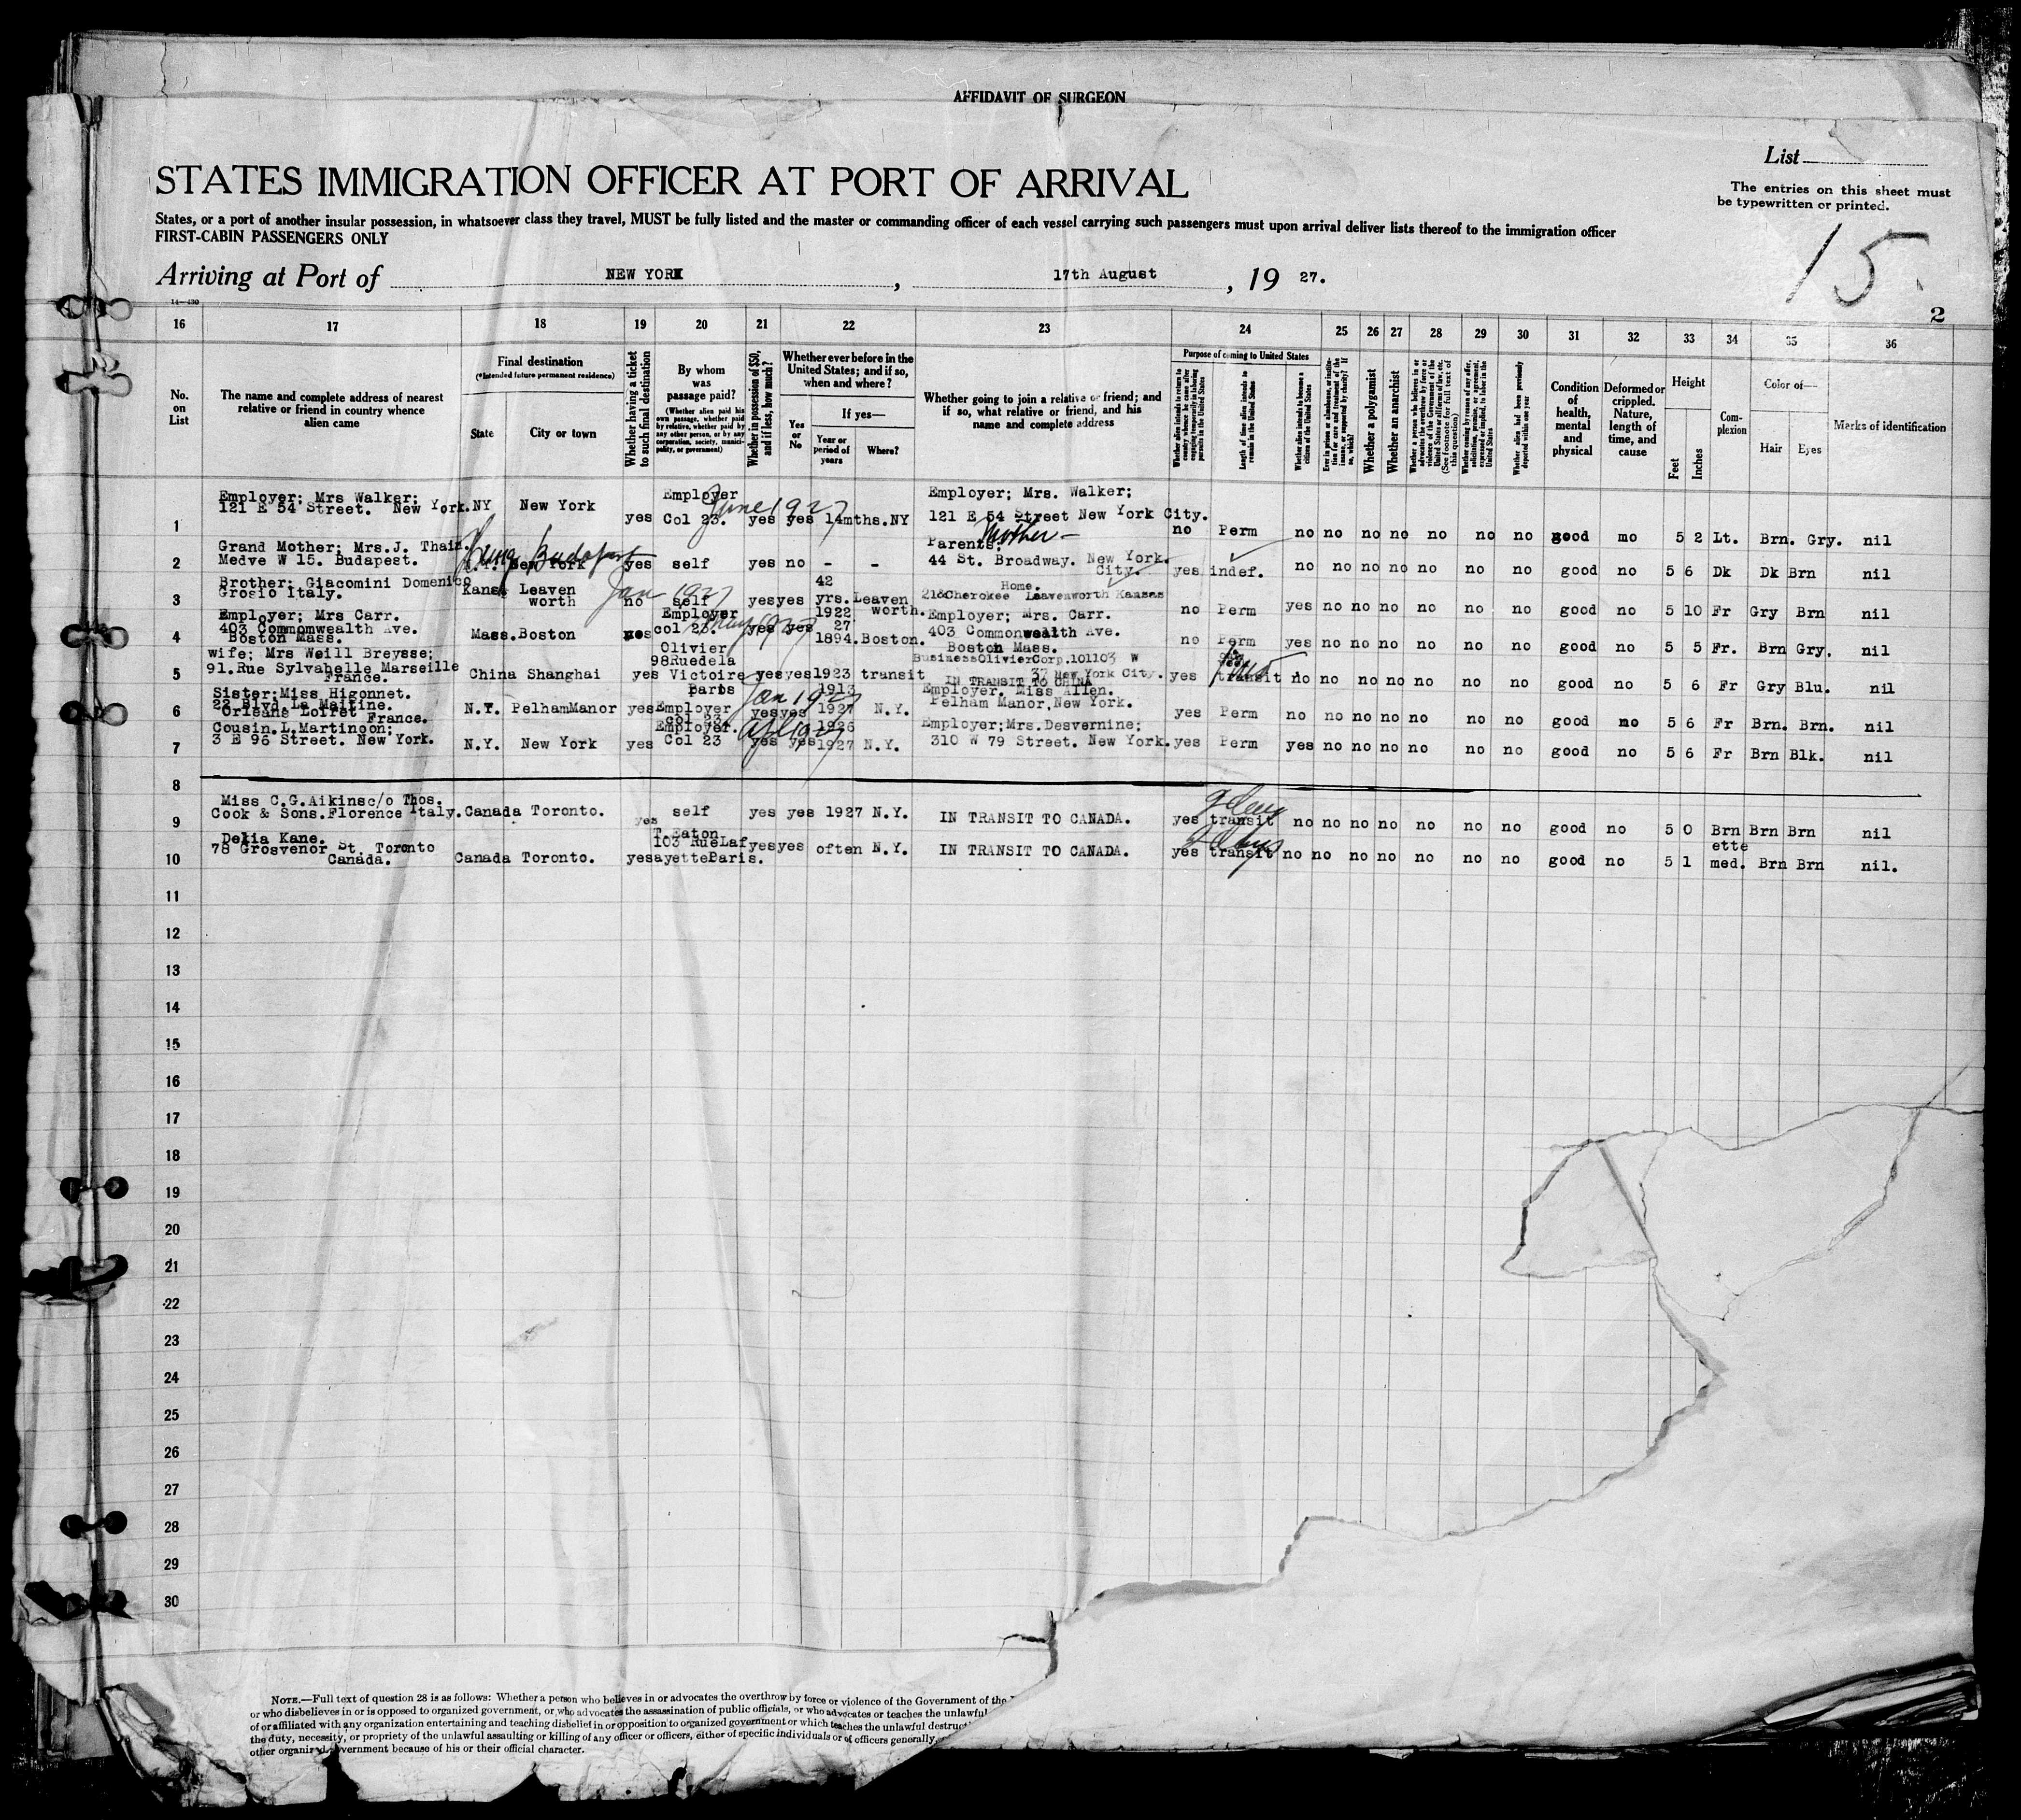 AFFIDAVIT OF SURGEON
List
STATES IMMIGRATION OFFICER AT PORT OF ARRIVAL
The entries on this sheet must
be typewritten or printed.
States, or a port of another insular possession, in whatsoever class they travel, MUST be fully listed and the master or commanding officer of each vessel carrying such passengers must upon arrival deliver lists thereof to the immigration officer
FIRST-CABIN PASSENGERS ONLY
15
Arriving at Port of NEW YORK, 17th August, 19 27.
14—430
2
16 17 18 19 20 21 22 23 24 25 26 27 28 29 30 31 32 33 34 35 36
No. on List
The name and complete address of nearest relative or friend in country whence alien came
Final destination
(*Intended future permanent residence)
State
City or town
Whether having a ticket to such final destination
By whom was passage paid?
(Whether alien paid his own passage, whether paid by relative, whether paid by any other person, or by any corporation, society, municipality, or government)
Whether in possession of $50, and if less, how much?
Whether ever before in the United States; and if so, when and where?
Yes or No
If yes—
Year or period of years
Where?
Whether going to join a relative or friend; and if so, what relative or friend, and his name and complete address
Purpose of coming to United States
Whether alien intends to return to country whence he came after engaging temporarily in laboring pursuits in the United States
Length of time alien intends to remain in the United States
Whether alien intends to become a citizen of the United States
Ever in prison or almshouse, or institution for care and treatment of the insane, or supported by charity? If so, which?
Whether a polygamist
Whether an anarchist
Whether a person who believes in or advocates the overthrow by force or violence of the Government of the United States or all forms of law, etc. (See footnote for full text of this question)
Whether coming by reason of any offer, solicitation, promise, or agreement, expressed or implied, to labor in the United States
Whether alien had been previously deported within one year
Condition of health, mental and physical
Deformed or crippled. Nature, length of time, and cause
Height
Feet
Inches
Complexion
Color of—
Hair
Eyes
Marks of identification
Employer; Mrs Walker;
121 E 54 Street. New York.
1 NY New York yes Employer Col 23. June 1927 yes yes 14mths. NY
Employer; Mrs. Walker;
121 E 54 Street New York City.
no Perm no no no no no no no good mo 5 2 Lt. Brn. Gry. nil
Grand Mother; Mrs.J. Thain.
2 Medve W 15. Budapest. N.Y. New York Hung Budapest yes self yes no - -
Mother
Parents;
44 St. Broadway. New York. City.
yes indef. no no no no no no no good no 5 6 Dk Dk Brn nil
Brother; Giacomini Domenico
3 Grosio Italy. Kans. Leaven worth Jan 1927 no self yes yes 42 yrs. 1922 Leaven worth.
Home.
218Cherokee Leavenworth Kansas
no Perm yes no no no no no no good no 5 10 Fr Gry Brn nil
Employer; Mrs Carr.
403 Commonwealth Ave.
4 Boston Mass. Mass. Boston yes Employer col 23. May 1927 yes yes 27 1894. Boston.
Employer; Mrs. Carr.
403 Commonwealth Ave.
Boston Mass.
no Perm yes no no no no no no good no 5 5 Fr. Brn Gry. nil
wife; Mrs Weill Breysse;
91.Rue Sylvabelle Marseille
France.
5 China Shanghai yes Olivier 98Ruedela Victoire Paris yes yes 1923 transit
BusinessOlivierCorp.101103 W
37 New York City.
IN TRANSIT TO CHINA
yes transit no no no no no no no good no 5 6 Fr Gry Blu. nil
Sister;Miss Higonnet.
22 Blvd.La Maitine.
Orleans Loiret France.
6 N.Y. PelhamManor yes Employer col 23. Jan 1927 yes yes 1913 1927 N.Y.
Employer. Miss Allen.
Pelham Manor,New York.
yes Perm no no no no no no no good no 5 6 Fr Brn. Brn. nil
Cousin.L.Martinoon;
3 E 96 Street. New York.
7 N.Y. New York yes Employer. Col 23 yes yes 1926 1927 N.Y.
Employer;Mrs.Desvernine;
310 W 79 Street. New York.
yes Perm yes no no no no no no good no 5 6 Fr Brn Blk. nil
8
Miss C.G.Aikinsc/o Thos.
Cook & Sons.Florence Italy.
9 Canada Toronto. yes self yes yes 1927 N.Y. IN TRANSIT TO CANADA. yes transit no no no no no no no good no 5 0 Brn ette Brn Brn nil
Delia Kane.
78 Grosvenor St. Toronto
Canada.
10 Canada Toronto. yes T.Eaton 103 RueLafayetteParis. yes yes often N.Y. IN TRANSIT TO CANADA. yes transit no no no no no no no good no 5 1 med. Brn Brn nil.
11
12
13
14
15
16
17
18
19
20
21
22
23
24
25
26
27
28
29
30
NOTE.—Full text of question 28 is as follows: Whether a person who believes in or advocates the overthrow by force or violence of the Government of the
or who disbelieves in or is opposed to organized government, or who advocates the assassination of public officials, or who advocates or teaches the unlawful
of or affiliated with any organization entertaining and teaching disbelief in or opposition to organized government or which teaches the unlawful
the duty, necessity, or propriety of the unlawful assaulting or killing of any officer or officers, either of specific individuals or of officers generally,
other organized government because of his or their official character.